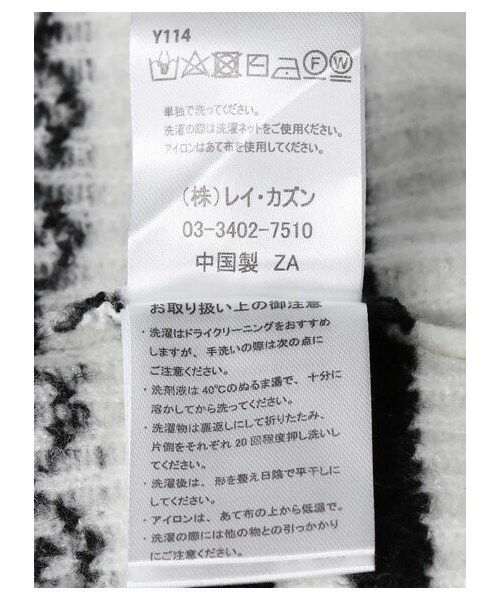 Y114
F W
単独で洗ってください。
洗濯の際は洗濯ネットをご使用ください。
アイロンはあて布を使用してください。
(株)レイ・カズン
03-3402-7510
中国製 ZA
お取り扱い上の御注意
・洗濯はドライクリーニングをおすすめ
しますが、手洗いの際は次の点に
ご注意ください。
・洗剤液は40℃のぬるま湯で、十分に
溶かしてから洗ってください。
・洗濯物は裏返しにして折りたたみ、
片側をそれぞれ20回程度押し洗いし
てください。
・洗濯後は、形を整え日陰で平干しに
してください。
・アイロンは、あて布の上から低温で。
・洗濯の際には他の物との引っかかり
にご注意ください。